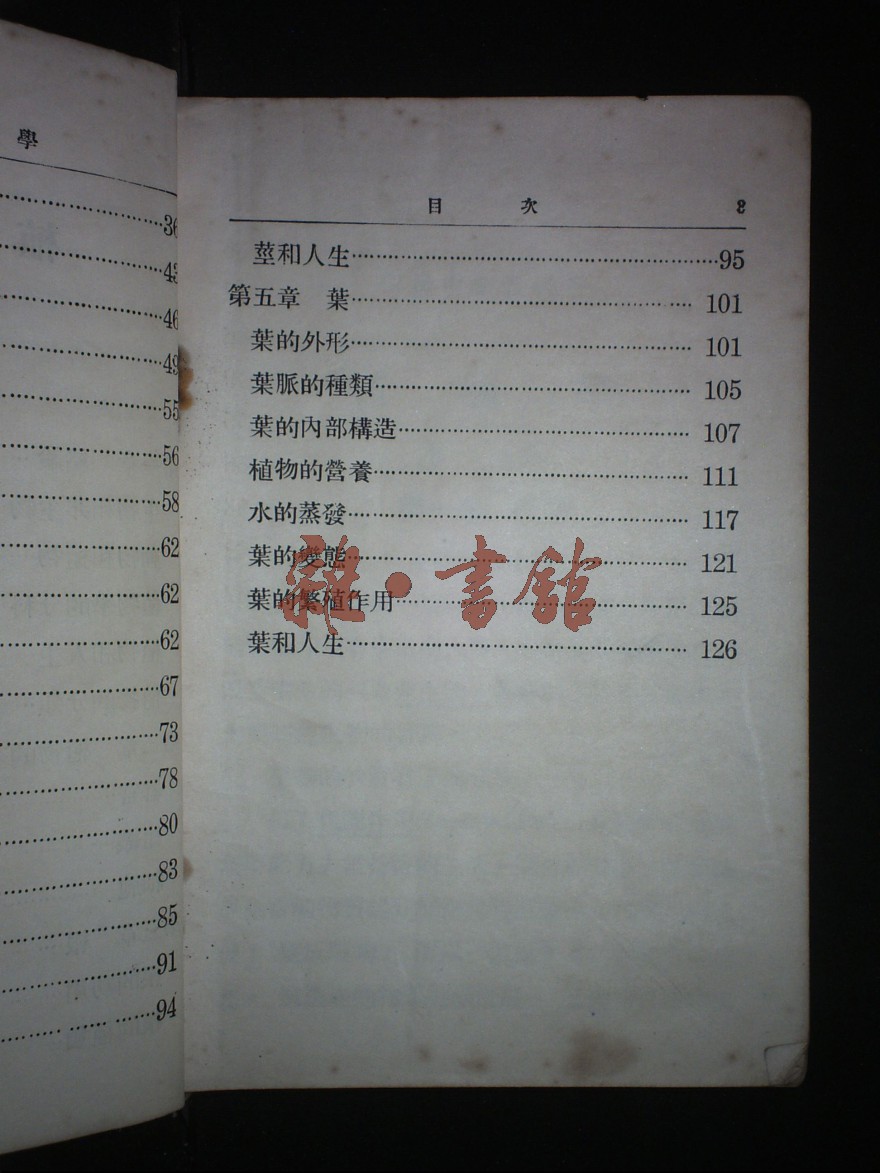 學
36
43
46
49
55
56
58
62
62
62
67
73
78
80
83
85
91
94
目 次 3
莖和人生 95
第五章 葉 101
葉的外形 101
葉脈的種類 105
葉的內部構造 107
植物的營養 111
水的蒸發 117
葉的變態 121
葉的繁殖作用 125
葉和人生 126
雜·書館